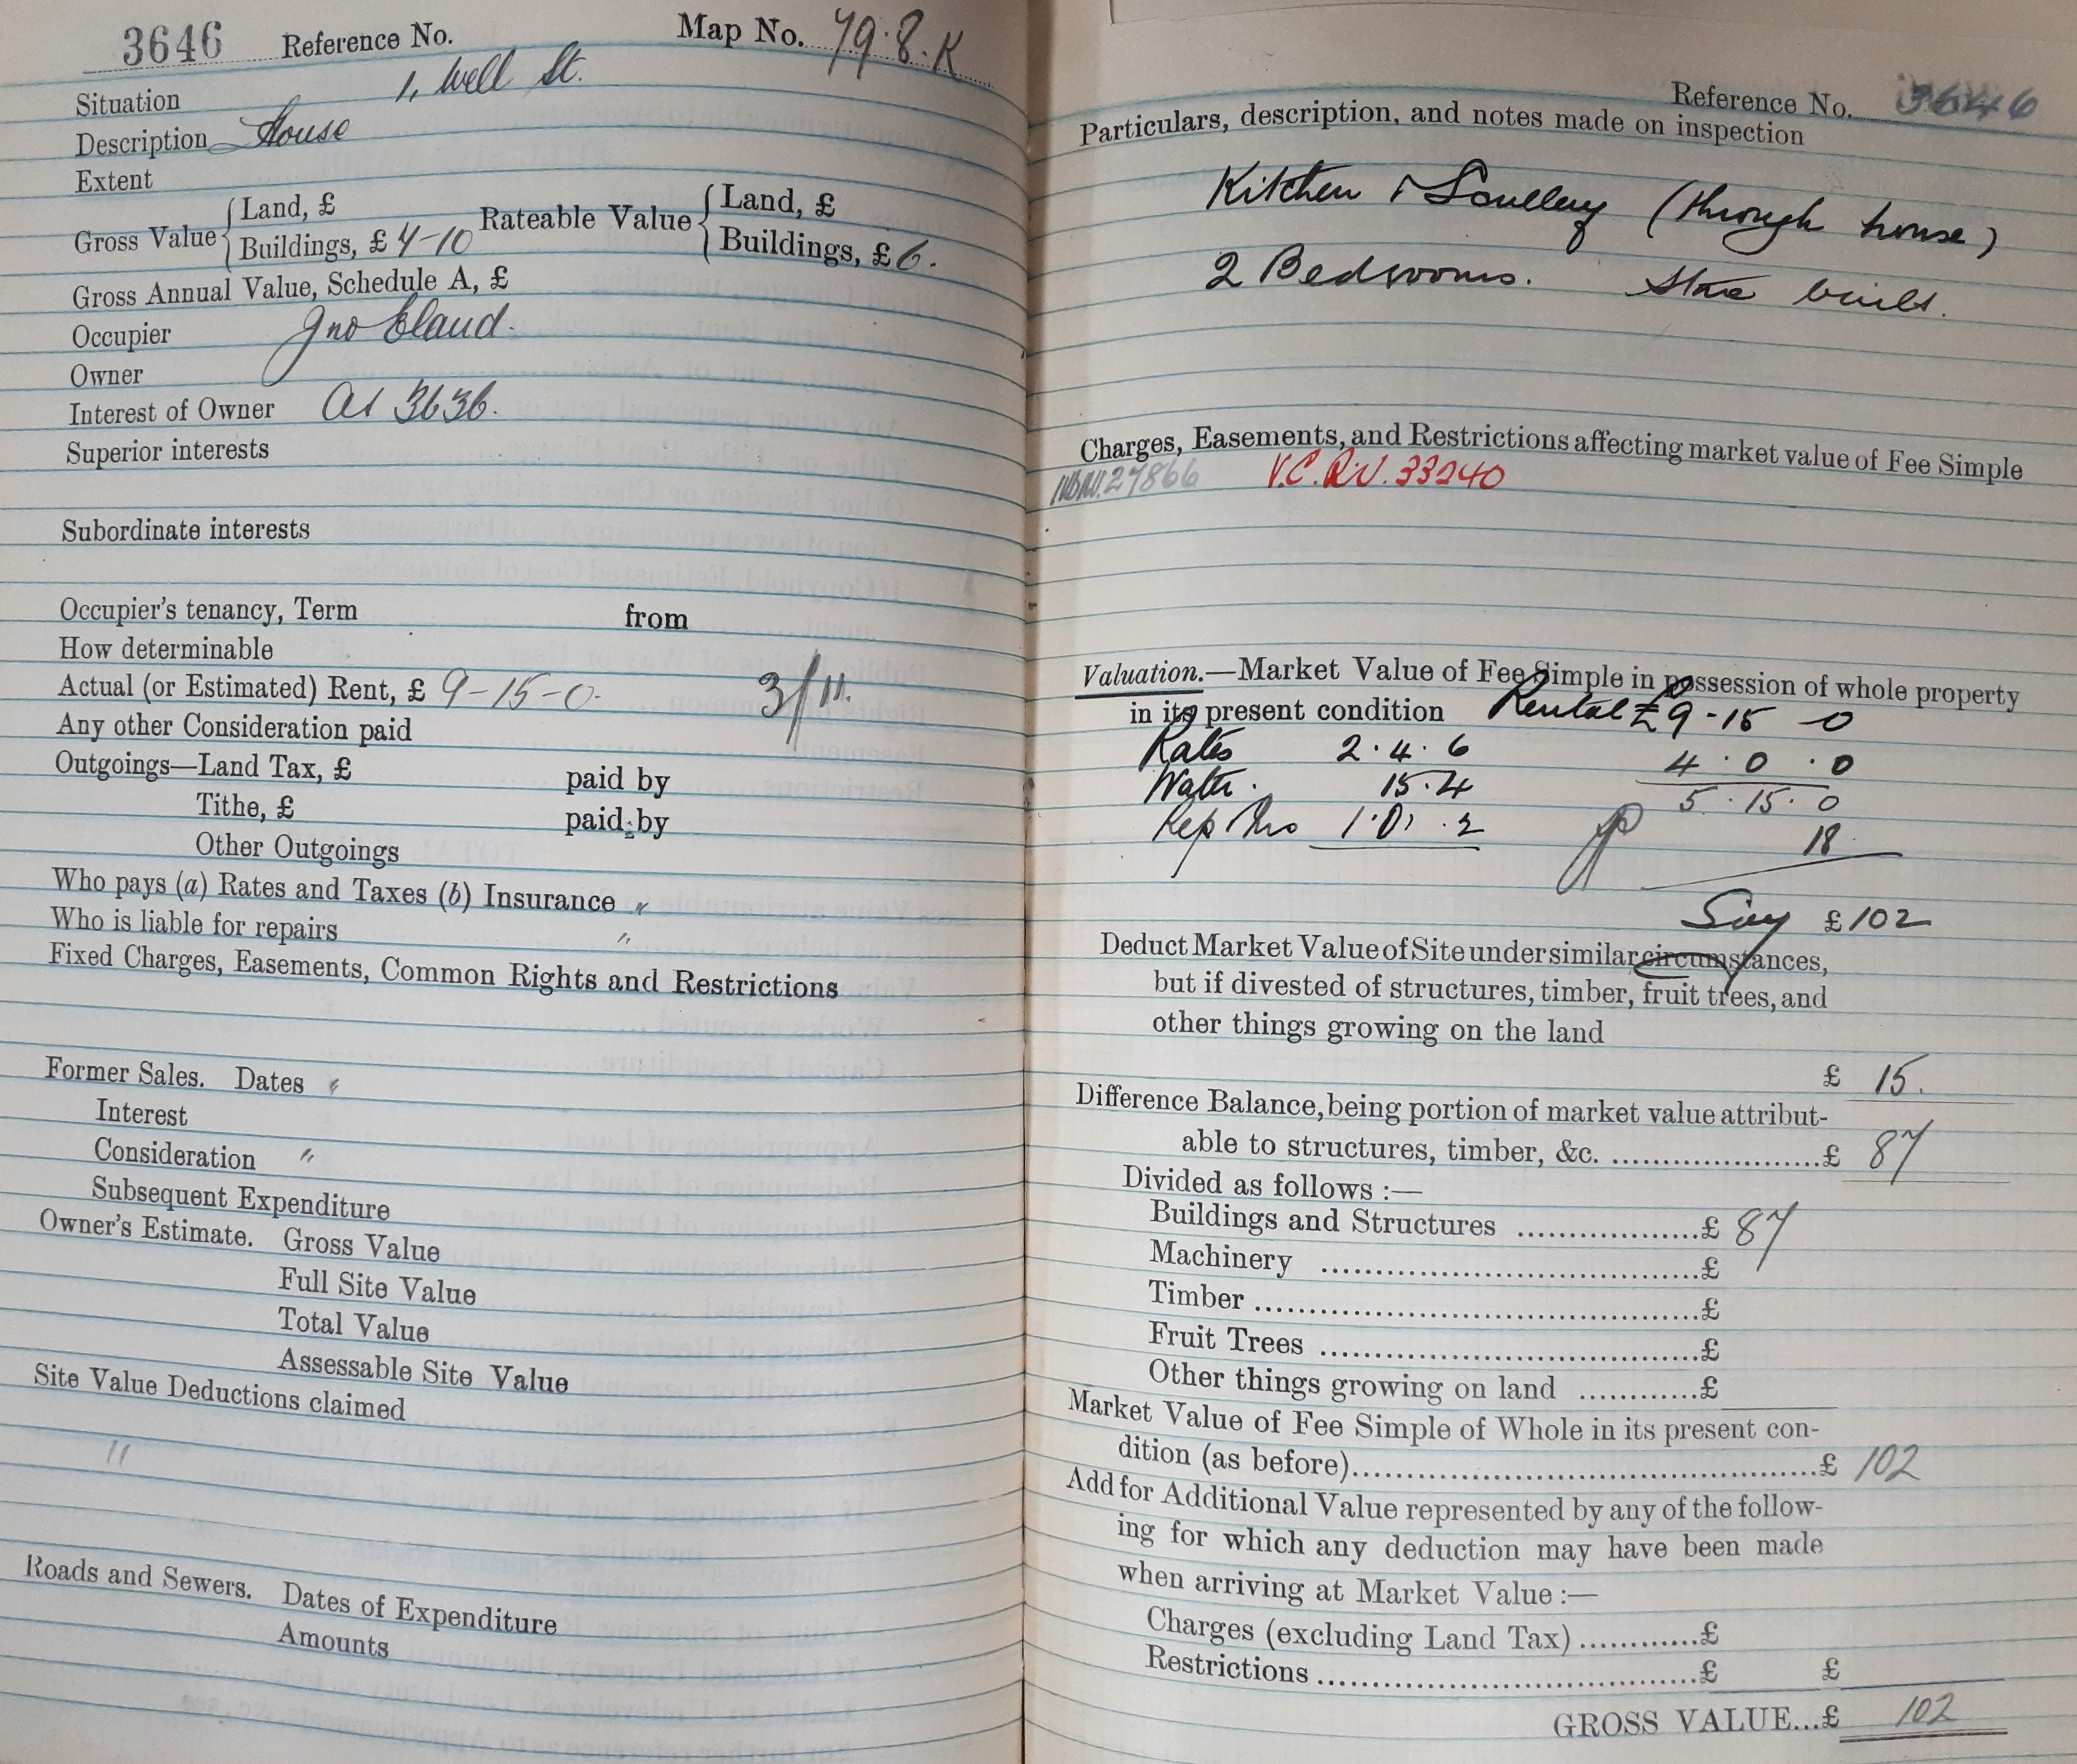 3646 Reference No. Map No. 79.8.K
Situation 1, Well St.
Description House
Extent
Gross Value { Land, £ Rateable Value { Land, £
Buildings, £ 4-10 Buildings, £ 6.
Gross Annual Value, Schedule A, £
Occupier Jno Eland.
Owner
Interest of Owner As 3636.
Superior interests
Subordinate interests
Occupier's tenancy, Term from
How determinable
Actual (or Estimated) Rent, £ 9-15-0. 3/11.
Any other Consideration paid
Outgoings—Land Tax, £ paid by
Tithe, £ paid by
Other Outgoings
Who pays (a) Rates and Taxes (b) Insurance "
Who is liable for repairs "
Fixed Charges, Easements, Common Rights and Restrictions
Former Sales. Dates "
Interest
Consideration "
Subsequent Expenditure
Owner's Estimate. Gross Value
Full Site Value
Total Value
Assessable Site Value
Site Value Deductions claimed
"
Roads and Sewers. Dates of Expenditure
Amounts
Reference No. 3646
Particulars, description, and notes made on inspection
Kitchen & Scullery (through house)
2 Bedrooms. Stone built.
Charges, Easements, and Restrictions affecting market value of Fee Simple
27866 V.C. R.V. 33240
Valuation.—Market Value of Fee Simple in possession of whole property
in its present condition Rental £9-15-0
Rates 2.4.6 4.0.0
Water. 15.4 5.15.0
Rep 1.0.2 yp 18
Say £102
Deduct Market Value of Site under similar circumstances,
but if divested of structures, timber, fruit trees, and
other things growing on the land
£ 15.
Difference Balance, being portion of market value attribut-
able to structures, timber, &c. ......................£ 87
Divided as follows :—
Buildings and Structures ...................£ 87
Machinery .......................................£
Timber .............................................£
Fruit Trees .......................................£
Other things growing on land ............£
Market Value of Fee Simple of Whole in its present con-
dition (as before)................................................£ 102
Add for Additional Value represented by any of the follow-
ing for which any deduction may have been made
when arriving at Market Value :—
Charges (excluding Land Tax) ............£
Restrictions .......................................£ £
GROSS VALUE...£ 102